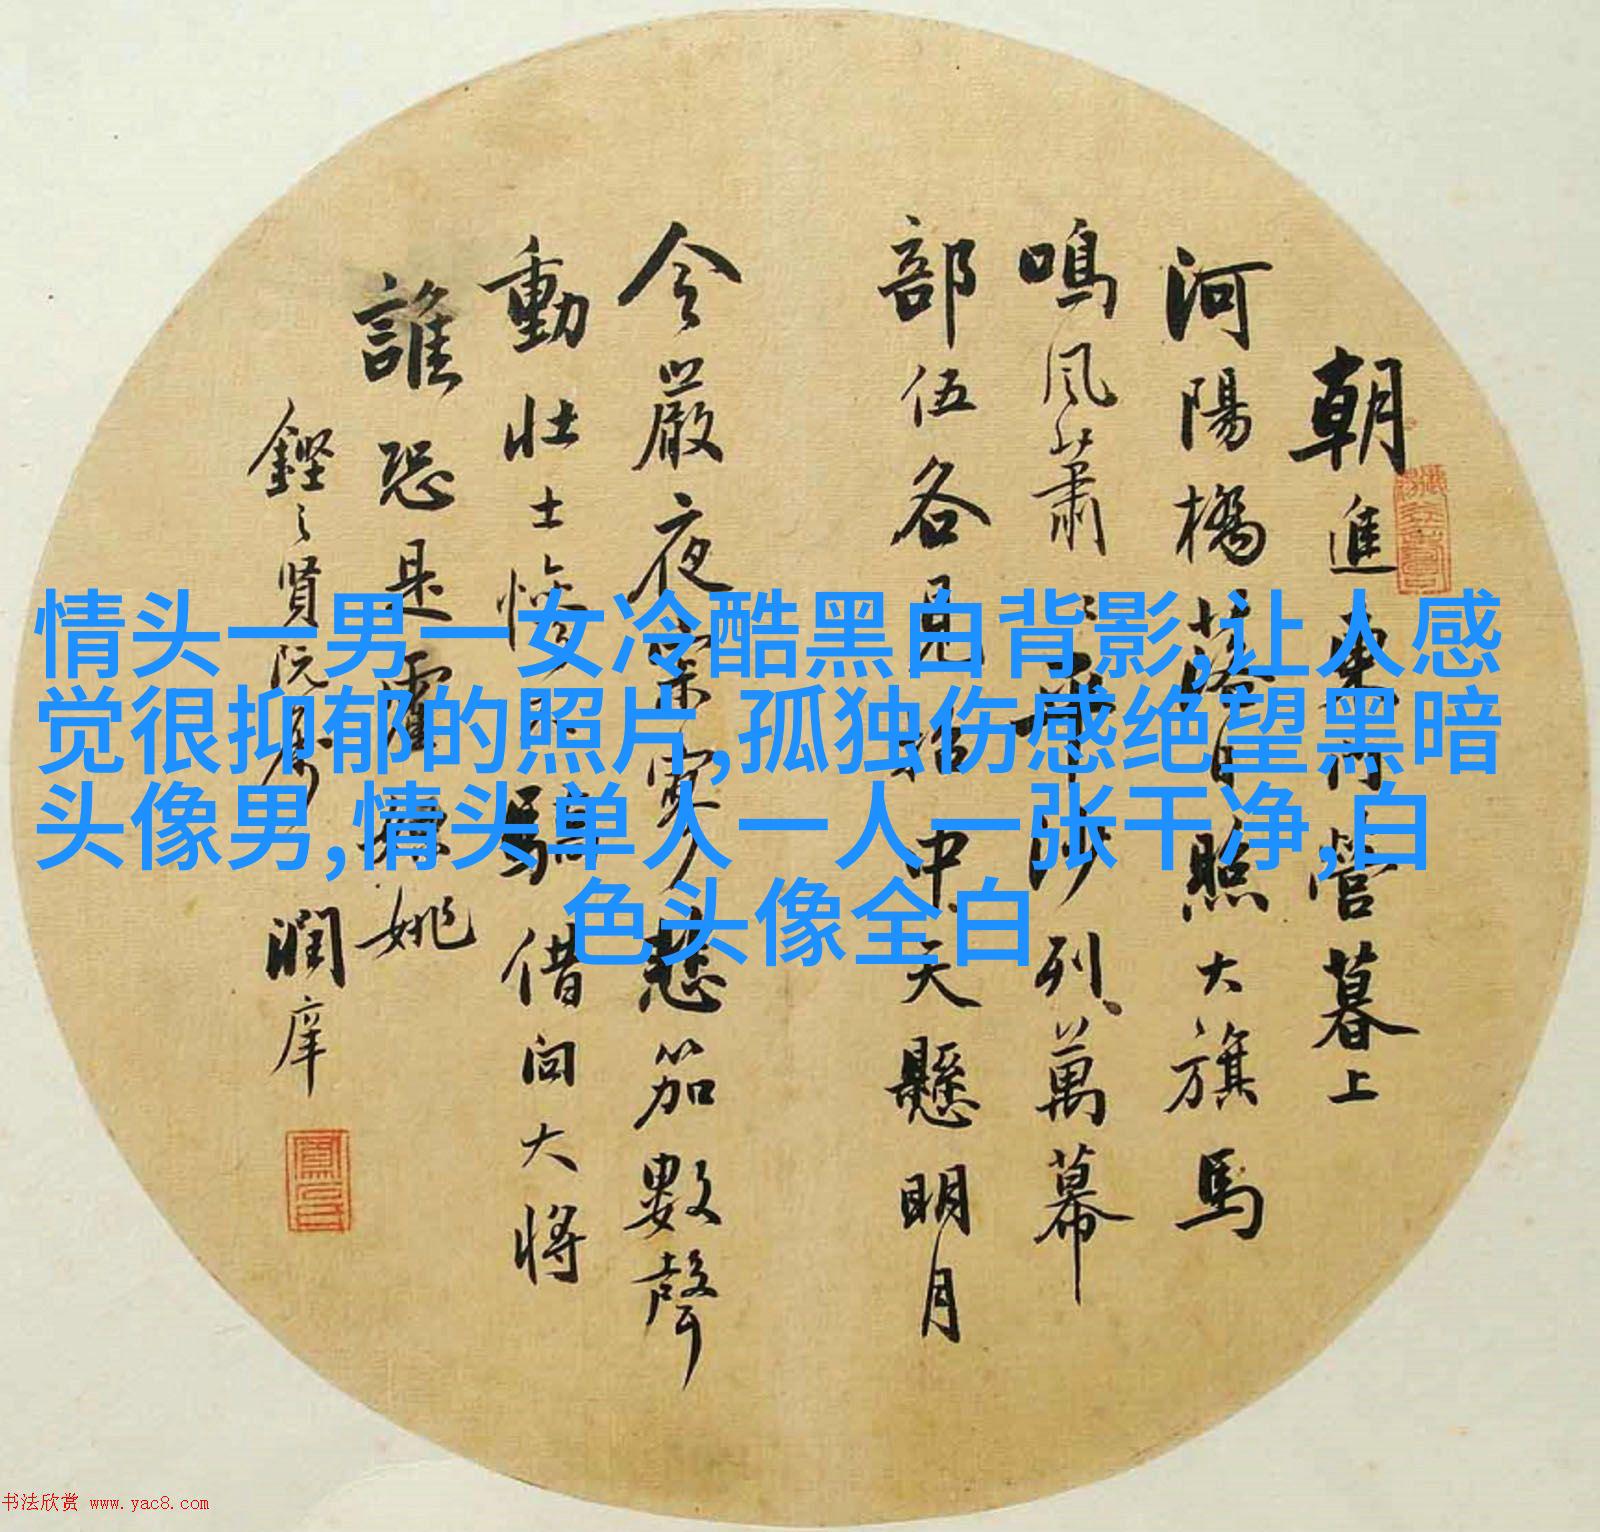 情头一男一女冷酷黑白背影,让人感
觉很抑郁的照片,孤独伤感绝望黑暗
头像男,情头单人一人一张干净,白
色头像全白
朝進東門營暮上
河陽橋落日照大旗馬
鳴風蕭〻平沙列萬幕
部伍各見招中天懸明月
令嚴夜寂寥悲笳數聲
動壯士慘不驕借問大將
誰恐是霍嫖姚
賢阮屬 潤庠
书法欣赏 www.yac8.com